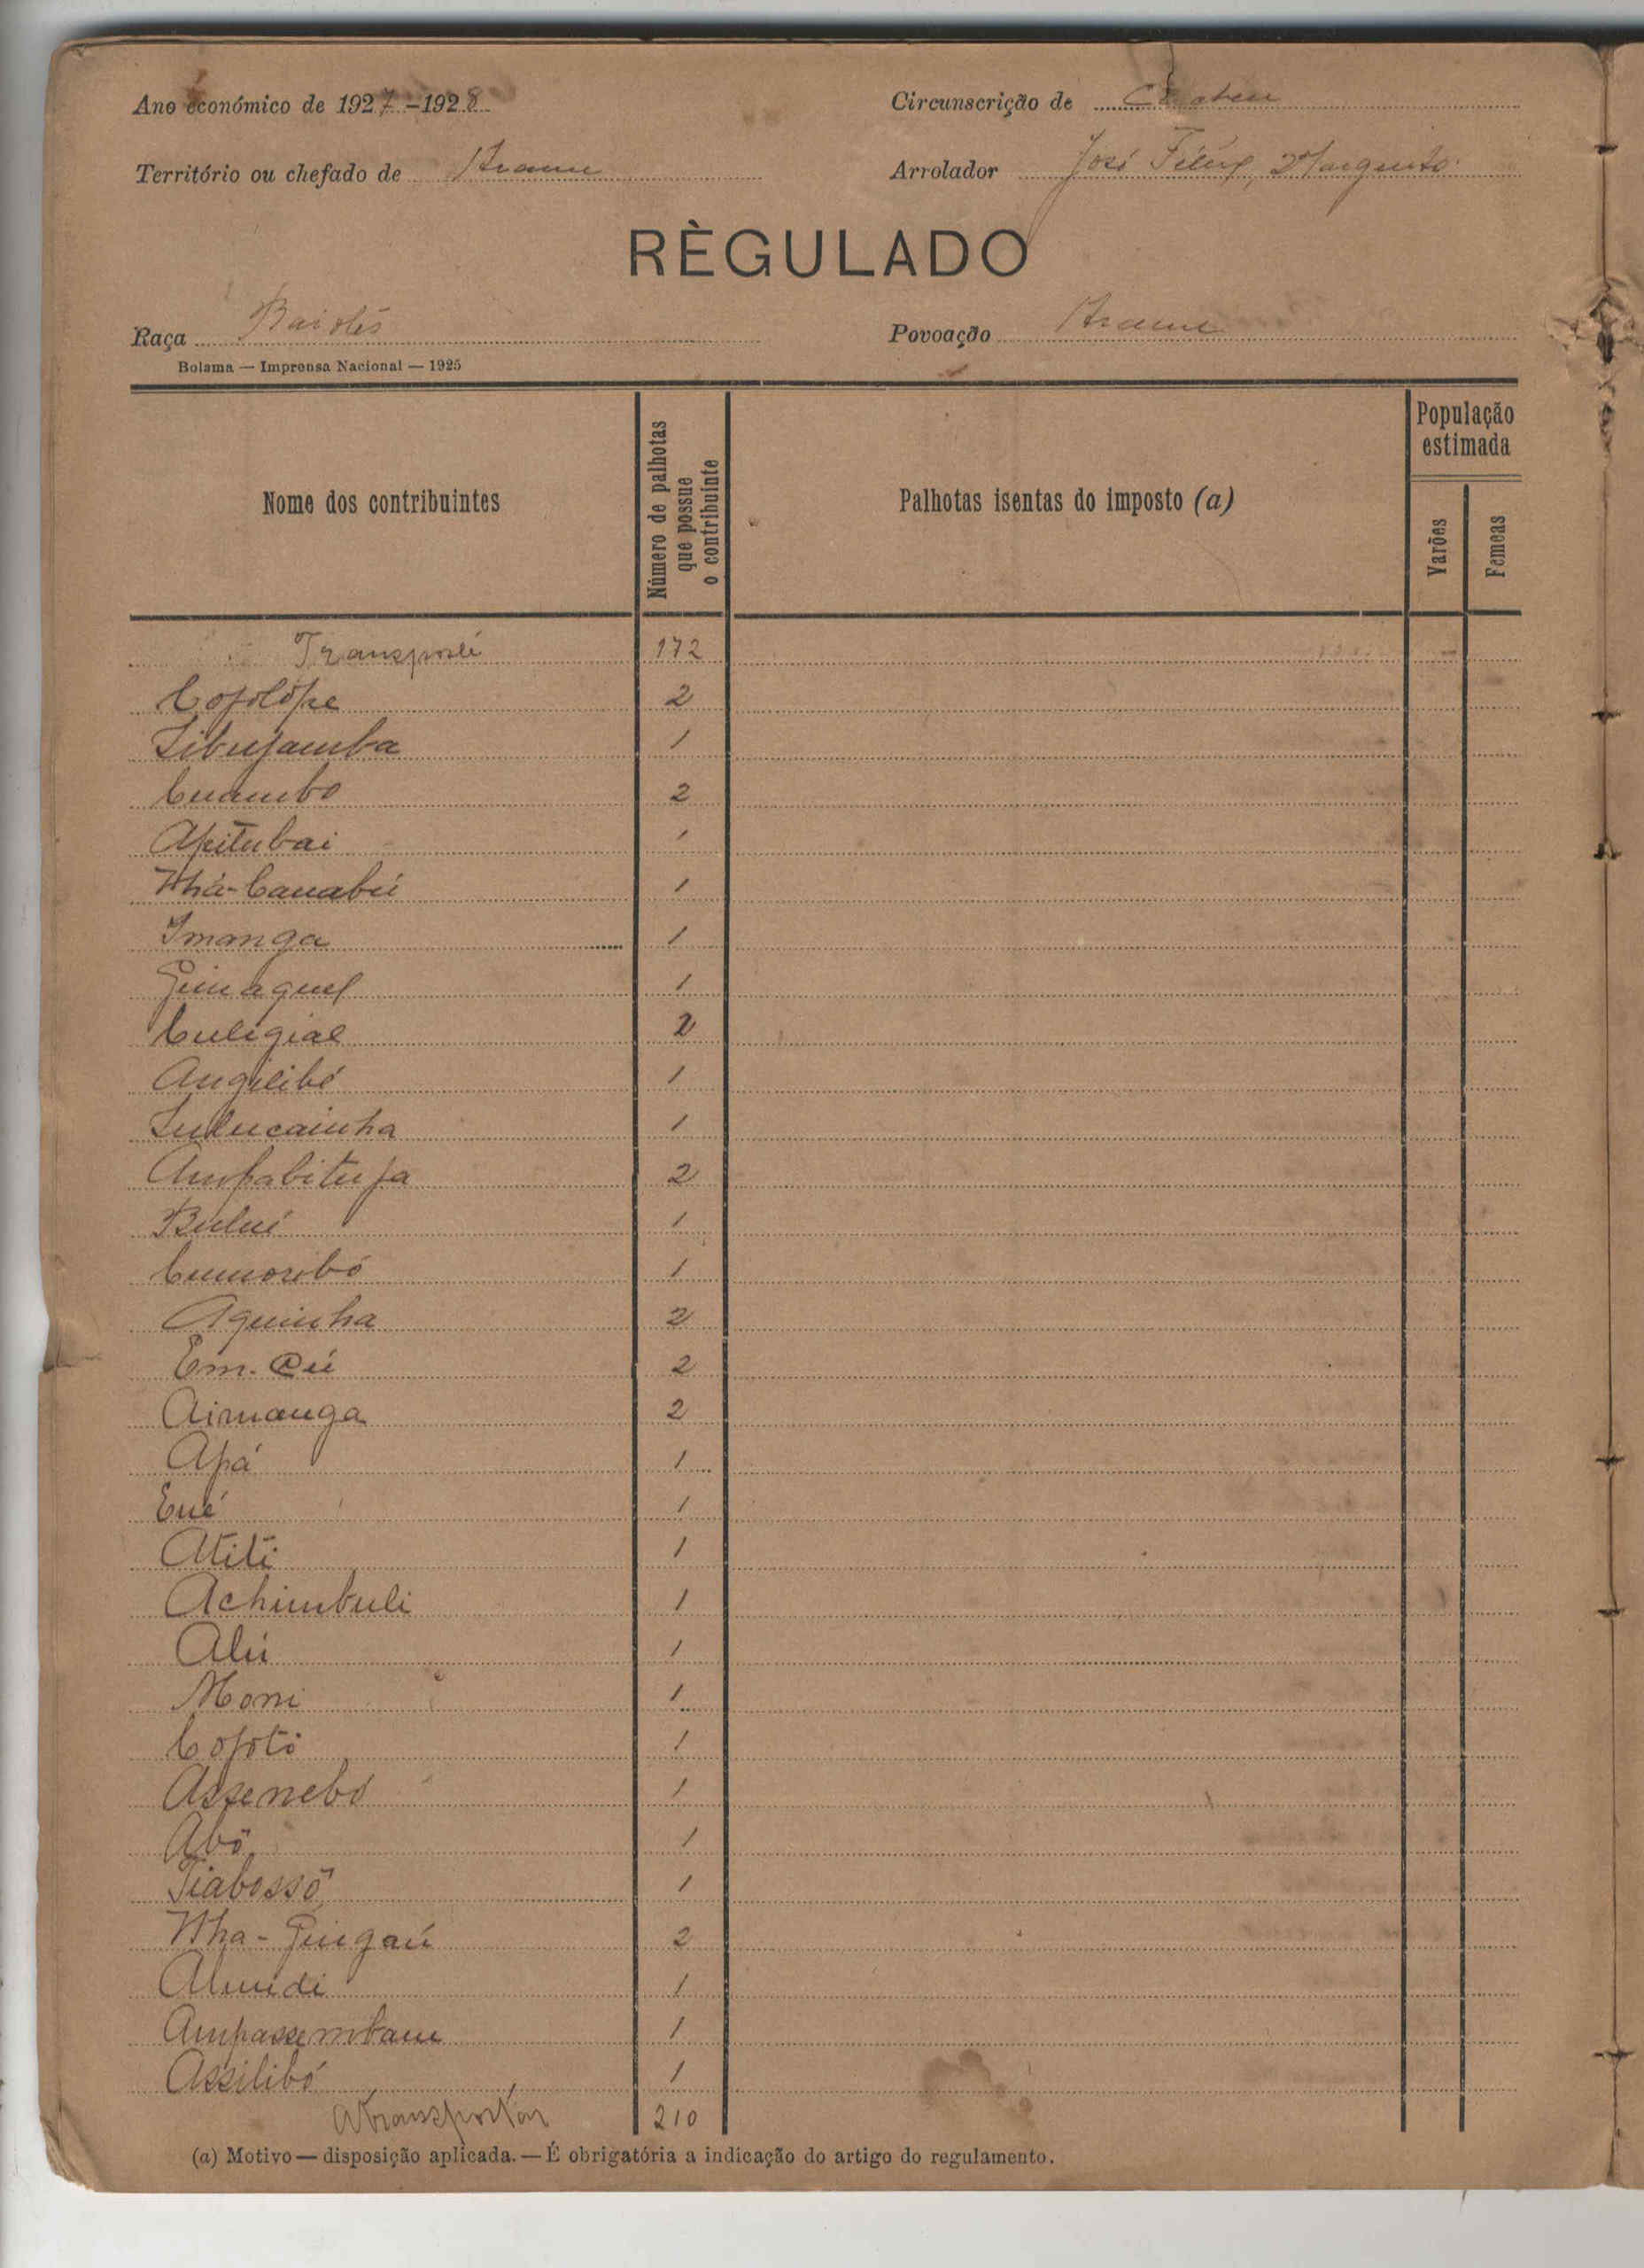 Ano económico de 1927-1928
Circunscrição de
Território ou chefado de Arame
Arrolador José Felix Margarido
RÈGULADO
Raça Baiotes
Povoação Arame
Bolama — Imprensa Nacional — 1925
Nome dos contribuintes
Número de palhotas que possue o contribuinte
Palhotas isentas do imposto (a)
População estimada
Varões
Femeas
Transporte 172
Cojolópe 2
Libujamba 1
Cuambo 2
Apitubai 1
Nhá-Canabú 1
Imanga 1
1
Culigial 2
Angilibó 1
Lulucainha 1
Ampabitupa 2
Bului 1
Cumoribó 1
Aguinha 2
2
Aimanga 2
Apá 1
Eué 1
Atiti 1
Achimbuli 1
Alú 1
Moni 1
Cojoti 1
Assenebó 1
Abô 1
Tiabossô 1
2
Alunidi 1
Ampassembane 1
Assilibó 1
A transportar 210
(a) Motivo — disposição aplicada. — É obrigatória a indicação do artigo do regulamento.